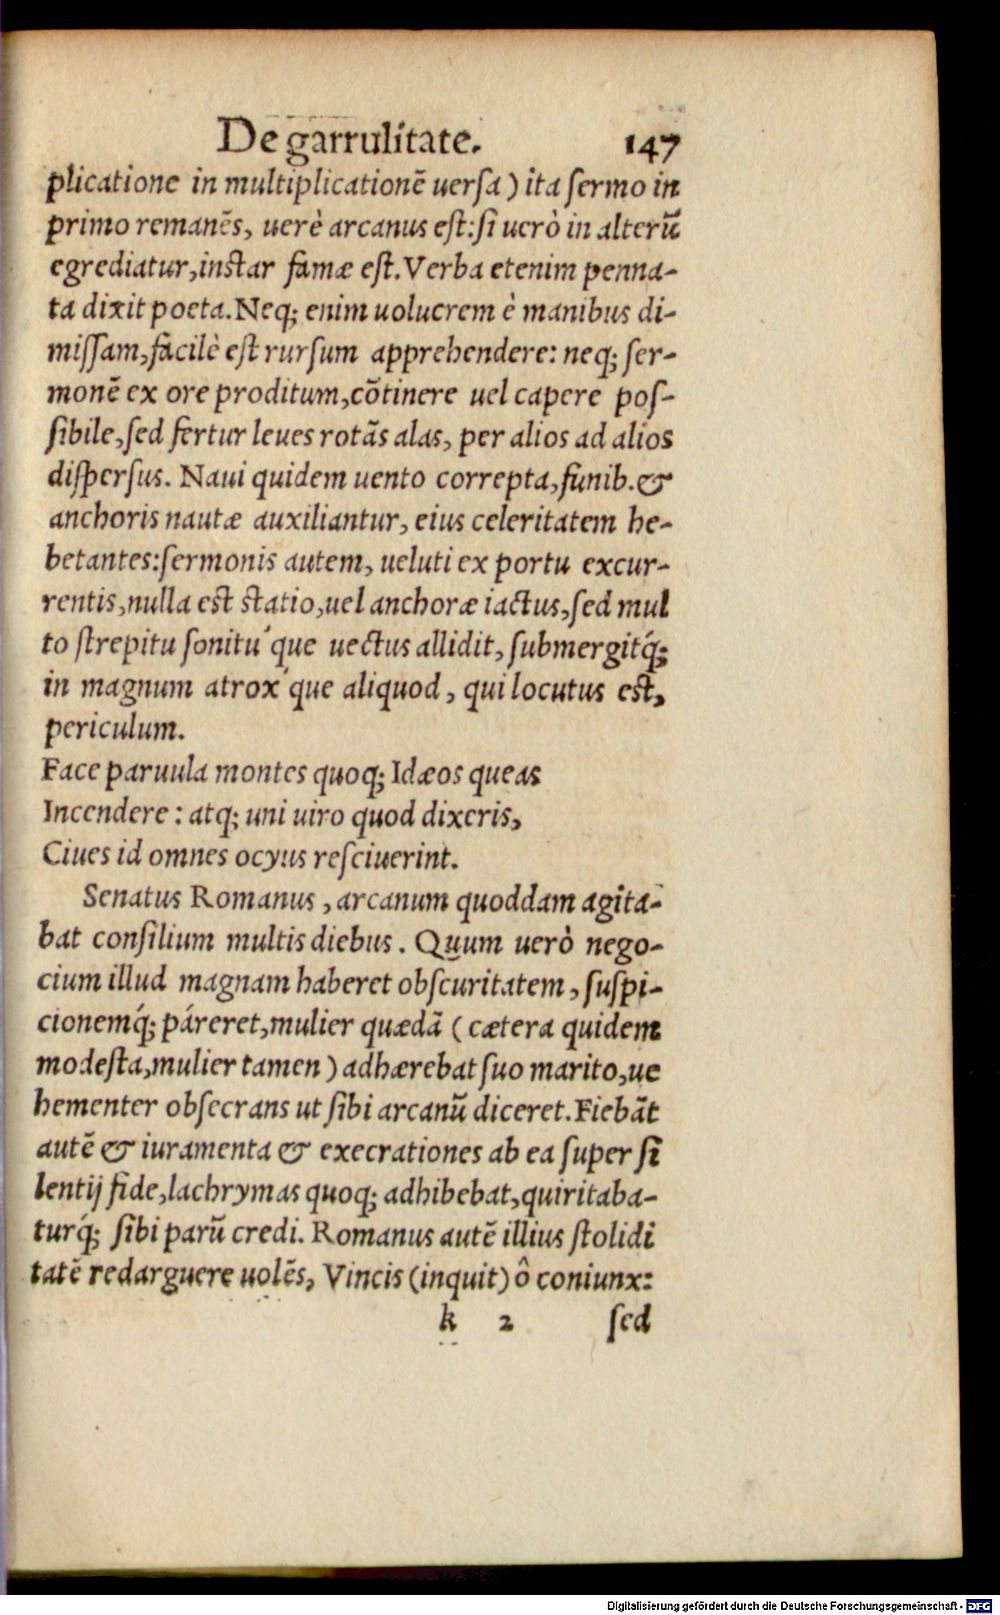 De garrulitate. 147
plicatione in multiplicationē uersa) ita sermo in
primo remanēs, uerè arcanus est: si uerò in alterū
egrediatur, instar famæ est. Verba etenim penna-
ta dixit poeta. Neq; enim uolucrem è manibus di-
missam, facilè est rursum apprehendere: neq; ser-
monē ex ore proditum, cōtinere uel capere pos-
sibile, sed fertur leues rotās alas, per alios ad alios
dispersus. Naui quidem uento correpta, funib. &
anchoris nautæ auxiliantur, eius celeritatem he-
betantes: sermonis autem, ueluti ex portu excur-
rentis, nulla est statio, uel anchoræ iactus, sed mul
to strepitu sonitu´que uectus allidit, submergitq́;
in magnum atrox´que aliquod, qui locutus est,
periculum.
Face paruula montes quoq; Idæos queas
Incendere: atq; uni uiro quod dixeris,
Ciues id omnes ocyus resciuerint.
Senatus Romanus, arcanum quoddam agita-
bat consilium multis diebus. Quum uerò nego-
cium illud magnam haberet obscuritatem, suspi-
cionemq́; páreret, mulier quædā (cætera quidem
modesta, mulier tamen) adhærebat suo marito, ue
hementer obsecrans ut sibi arcanū diceret. Fiebāt
autē & iuramenta & execrationes ab ea super si
lentij fide, lachrymas quoq; adhibebat, quiritaba-
turq́; sibi parū credi. Romanus autē illius stolidi
tatē redarguere uolēs, Vincis (inquit) ô coniunx:
k 2 sed
Digitalisierung gefördert durch die Deutsche Forschungsgemeinschaft - DFG